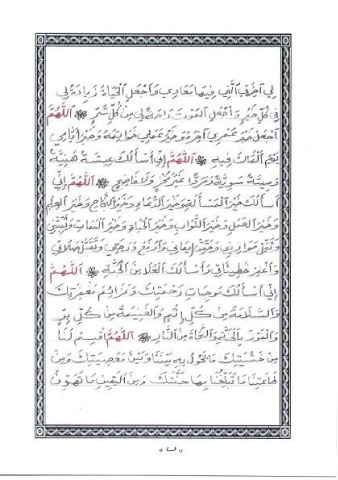 لِي آخِرَتِي الَّتِي فِيهَا مَعَادِي وَاجْعَلِ الْحَيَاةَ زِيَادَةً لِي
فِي كُلِّ خَيْرٍ وَاجْعَلِ الْمَوْتَ رَاحَةً لِي مِنْ كُلِّ شَرٍّ ۞ اَللّٰهُمَّ
اجْعَلْ خَيْرَ عُمْرِي آخِرَهُ وَخَيْرَ عَمَلِي خَوَاتِمَهُ وَخَيْرَ أَيَّامِي
يَوْمَ أَلْقَاكَ فِيهِ ۞ اَللّٰهُمَّ إِنِّي أَسْأَلُكَ عِيشَةً هَنِيَّةً
وَمِيتَةً سَوِيَّةً وَمَرَدًّا غَيْرَ مُخْزٍ وَلَا فَاضِحٍ ۞ اَللّٰهُمَّ إِنِّي
أَسْأَلُكَ خَيْرَ الْمَسْأَلَةِ وَخَيْرَ الدُّعَاءِ وَخَيْرَ النَّجَاحِ وَخَيْرَ الْعِلْمِ
وَخَيْرَ الْعَمَلِ وَخَيْرَ الثَّوَابِ وَخَيْرَ الْحَيَاةِ وَخَيْرَ الْمَمَاتِ وَثَبِّتْنِي
وَثَقِّلْ مَوَازِينِي وَحَقِّقْ إِيمَانِي وَارْفَعْ دَرَجَتِي وَتَقَبَّلْ صَلَاتِي
وَاغْفِرْ خَطِيئَاتِي وَأَسْأَلُكَ الْعُلَا مِنَ الْجَنَّةِ ۞ اَللّٰهُمَّ
إِنِّي أَسْأَلُكَ مُوجِبَاتِ رَحْمَتِكَ وَعَزَائِمَ مَغْفِرَتِكَ
وَالسَّلَامَةَ مِنْ كُلِّ إِثْمٍ وَالْغَنِيمَةَ مِنْ كُلِّ بِرٍّ
وَالْفَوْزَ بِالْجَنَّةِ وَالنَّجَاةَ مِنَ النَّارِ ۞ اَللّٰهُمَّ اقْسِمْ لَنَا
مِنْ خَشْيَتِكَ مَا تَحُولُ بِهِ بَيْنَنَا وَبَيْنَ مَعْصِيَتِكَ وَمِنْ
طَاعَتِكَ مَا تُبَلِّغُنَا بِهَا جَنَّتَكَ وَمِنَ الْيَقِينِ مَا تُهَوِّنُ